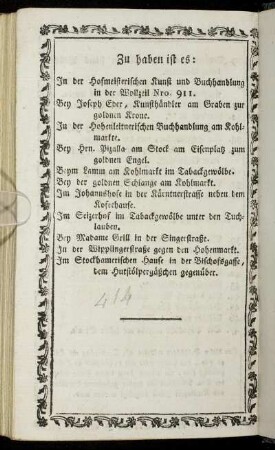 Zu haben ist es:
In der Hofmeisterischen Kunst und Buchhandlung
in der Wollzeil Nro. 911.
Bey Joseph Eder, Kunsthändler am Graben zur
goldnen Krone.
In der Hohenleitnerischen Buchhandlung am Kohl-
markte.
Bey Hrn. Pizalla am Stock am Eisenplatz zum
goldnen Engel.
Beym Lamm am Kohlmarkt im Tabackgewölbe.
Bey der goldnen Schlange am Kohlmarkt.
Im Johannshofe in der Kärntnerstrasse neben dem
Kofehause.
Im Seizerhof im Tabackgewölbe unter den Tuch-
lauben.
Bey Madame Grill in der Singerstraße.
In der Wipplingerstraße gegen den Hohenmarkt.
Im Stockhamerischen Hause in der Bischofsgasse,
dem Hutstölpergäßchen gegenüber.
414